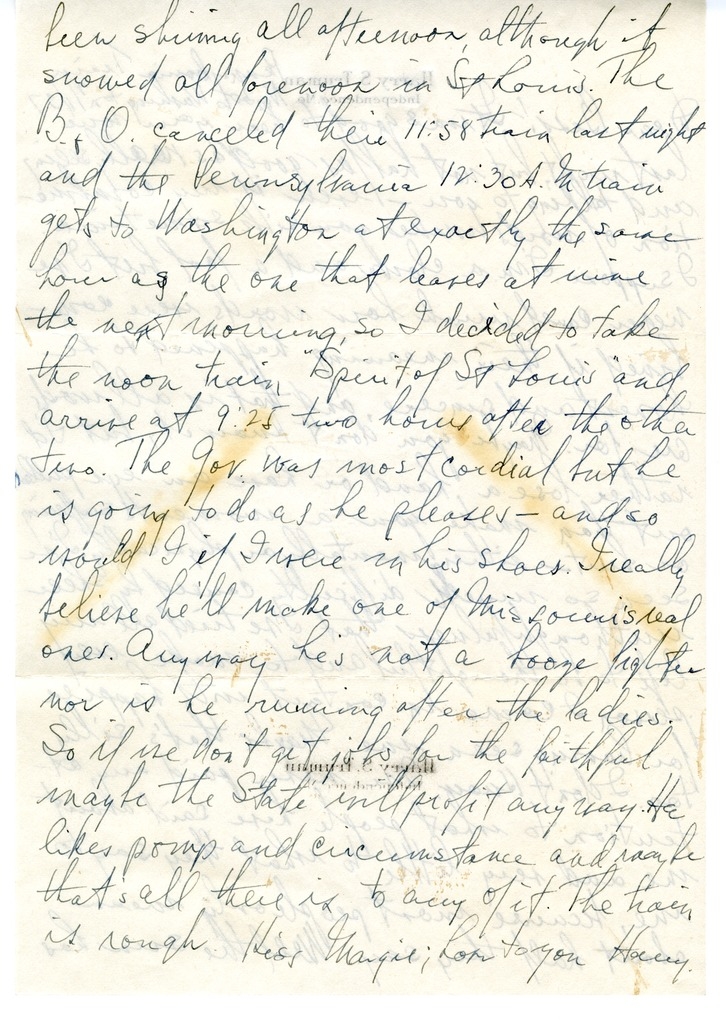 been shining all afternoon, although it
snowed all forenoon in St Louis. The
B. & O. canceled their 11:58 train last night
and the Pennsylvania 12:30 A.M train
gets to Washington at exactly the same
hour as the one that leaves at nine
the next morning, so I decided to take
the noon train "Spirit of St Louis" and
arrive at 9:25 two hours after the other
two. The Gov. was most cordial but he
is going to do as he pleases - and so
would I if I were in his shoes. I really
believe he'll make one of Missouri's real
ones. Anyway he's not a booze fighter
nor is he running after the ladies.
So if we don't get jobs for the faithful
maybe the State will profit anyway. He
likes pomp and circumstance and maybe
that's all there is to any of it. The train
is rough. Kiss Margie; love to you Harry.
Harry S. Truman
Independence, Mo.